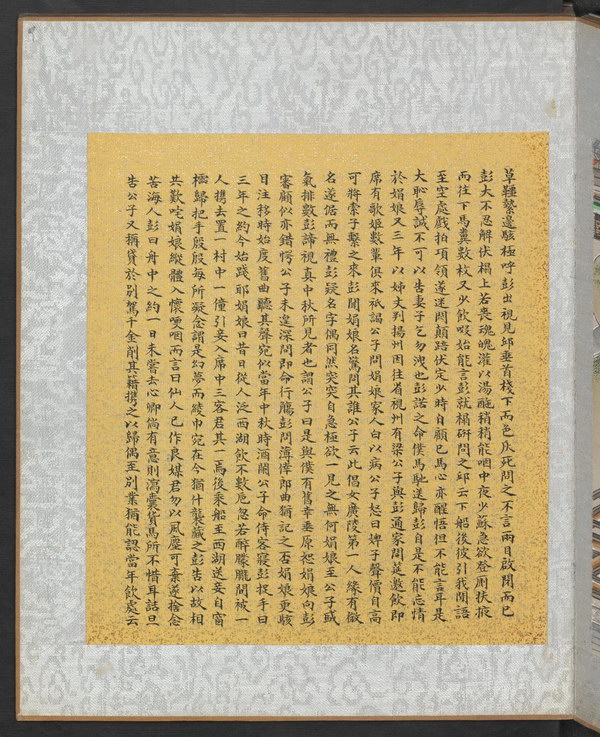 草韁繫邊駭極呼彭出視見邱垂首棧下面色灰死問之不言兩目啟閉而已
彭大不忍解伏榻上若喪魂魄灌以湯酏稍稍能咽中夜少蘇急欲登廁扶掖
而往下馬糞數枚又少飲啜始能言彭就榻研問之邱云下船後彼引我閒語
至空處戲拍項領遂迷悶顛踣伏定少時自顧已馬心亦醒悟但不能言耳是
大恥辱誠不可以告妻子乞勿洩也彭諾之命僕馬馳送歸彭自是不能忘情
於娟娘又三年以姊丈判揚州因往省視州有梁公子與彭通家開筵邀飲即
席有歌姬數輩俱來祇謁公子問娟娘家人白以病公子怒曰婢子聲價自高
可將索子繫之來彭聞娟娘名驚問其誰公子云此倡女廣陵第一人緣有微
名遂倨而無禮彭疑名字偶同然突突自急極欲一見之無何娟娘至公子盛
氣排數彭諦視真中秋所見者也謂公子曰是與僕有舊幸垂原恕娟娘向彭
審顧似亦錯愕公子未遑深問即命行觴彭問薄倖郎曲猶記之否娟娘更駭
目注移時始度舊曲聽其聲宛似當年中秋時酒闌公子命侍客寢彭捉手曰
三年之約今始踐耶娟娘曰昔日從人泛西湖飲不數卮忽若醉朦朧間被一
人攜去置一村中一僮引妾入席中三客君其一焉後乘船至西湖送妾自窗
櫺歸把手殷殷每所凝念謂是幻夢而綾巾宛在今猶什襲藏之彭告以故相
共歎咤娟娘縱體入懷哽咽而言曰仙人已作良媒君勿以風塵可棄遂捨念
苦海人彭曰舟中之約一日未嘗去心卿倘有意則瀉囊貨馬所不惜耳詰旦
告公子又稱貸於別駕千金削其籍攜之以歸偶至別業猶能認當年飲處云